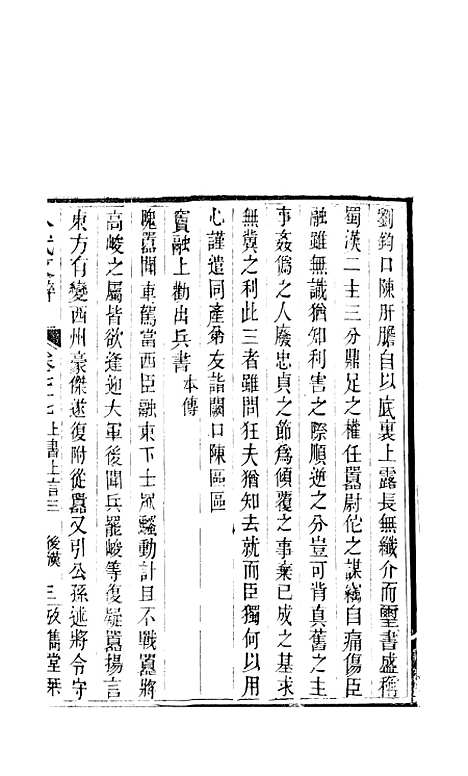 劉鈞口陳肝膽自以底裏上露長無纖介而璽書盛稱
蜀漢二主三分鼎足之權任囂尉佗之謀竊自痛傷臣
融雖無識猶知利害之際順逆之分豈可背真舊之主
事姦偽之人廢忠貞之節為傾覆之事棄已成之基求
無冀之利此三者雖問狂夫猶知去就而臣獨何以用
心謹遣同產弟友詣闕口陳區區
竇融上勸出兵書 本傳
隗囂聞車駕當西臣融東下士眾騷動計且不戰囂將
高峻之屬皆欲逢迎大軍後聞兵罷峻等復疑囂揚言
東方有變西州豪傑遂復附從囂又引公孫述將令守
卷二七 上書上言三 後漢 三 雋堂栞